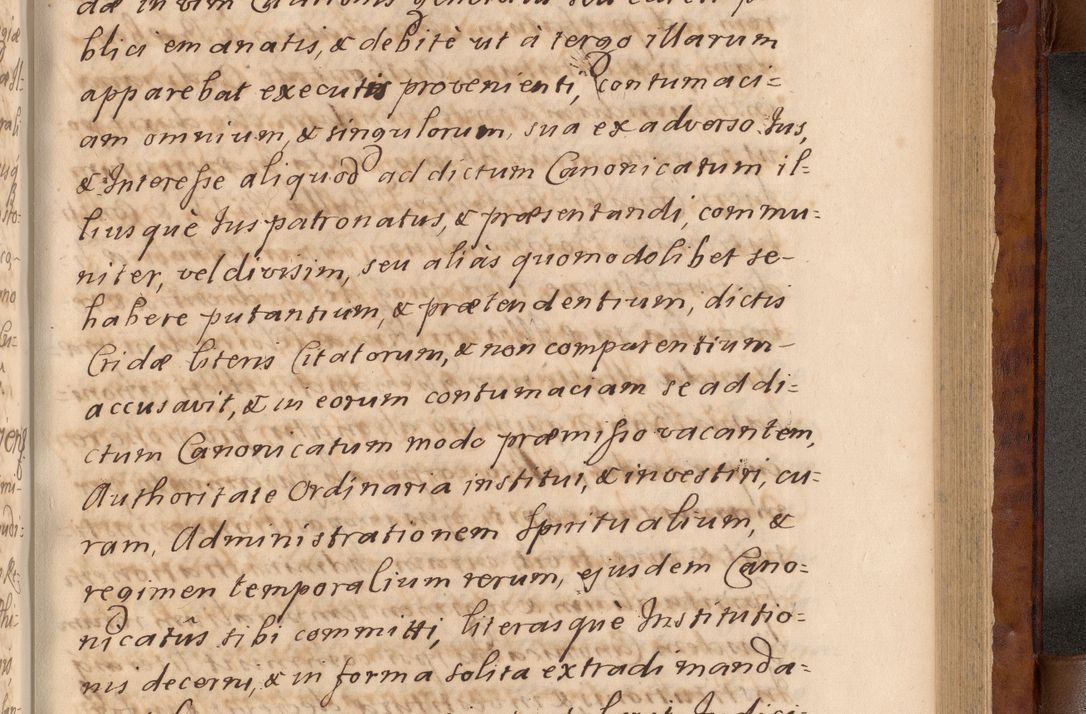 dæ in vim Citationis generalis seu
blici emanatis, & debitè ut à tergo illarum
apparebat executis provenienti, contumaci=
am omnium, & singulorum, sua ex adverso Jus,
& Interesse aliquod ad dictum Canonicatum il=
liusquè Juspatronatus, & præsentandi, commu=
niter, vel divisim, seu aliàs quomodolibet se-
habere putantium, & prætendentium, dictis
Cridæ literis Citatorum, & non comparentium-
accusavit, & in eorum contumaciam se ad di=
ctum Canonicatum modo præmisso vacantem,
Authoritate Ordinaria institui, & investiri, cu=
ram, Administrationem Spiritualium, &
regimen temporalium rerum, ejusdem Cano=
nicatûs sibi committi, literasquè Institutio=
nis decerni, & in forma solita extradi manda=